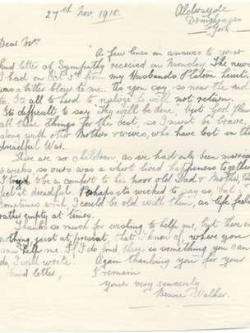 27th Nov. 1918.
York.
Dear Mr
A few lines in answer to your
kind letter of Sympathy received on Monday. The news
I had on Oct 3rd from my Husbands Platoon Lieut.
was a bitter blow to me. As you say, so near the end
to. It all so hard to realise he will not return.
Its difficult to say why will be done, but God does
all things for the best, so I must be brave,
along with other Mothers & wives, who have lost in this
dreadful War.
There are no children, as we had only been married
weeks so ours was a short lived happiness together.
I a comfort to his poor old Dad & Mother,
dreadful. Perhaps its wicked to say so, but I
sometimes wish I could be old with them, as life feels
rather empty at times.
Thanks so much for wishing to help me, but there is
nothing just at present, that I know of where you
can help me. If I do find there is something you can
do, I will write. Again thanking you for your
kind letter, I remain
yours very sincerely
Walker.